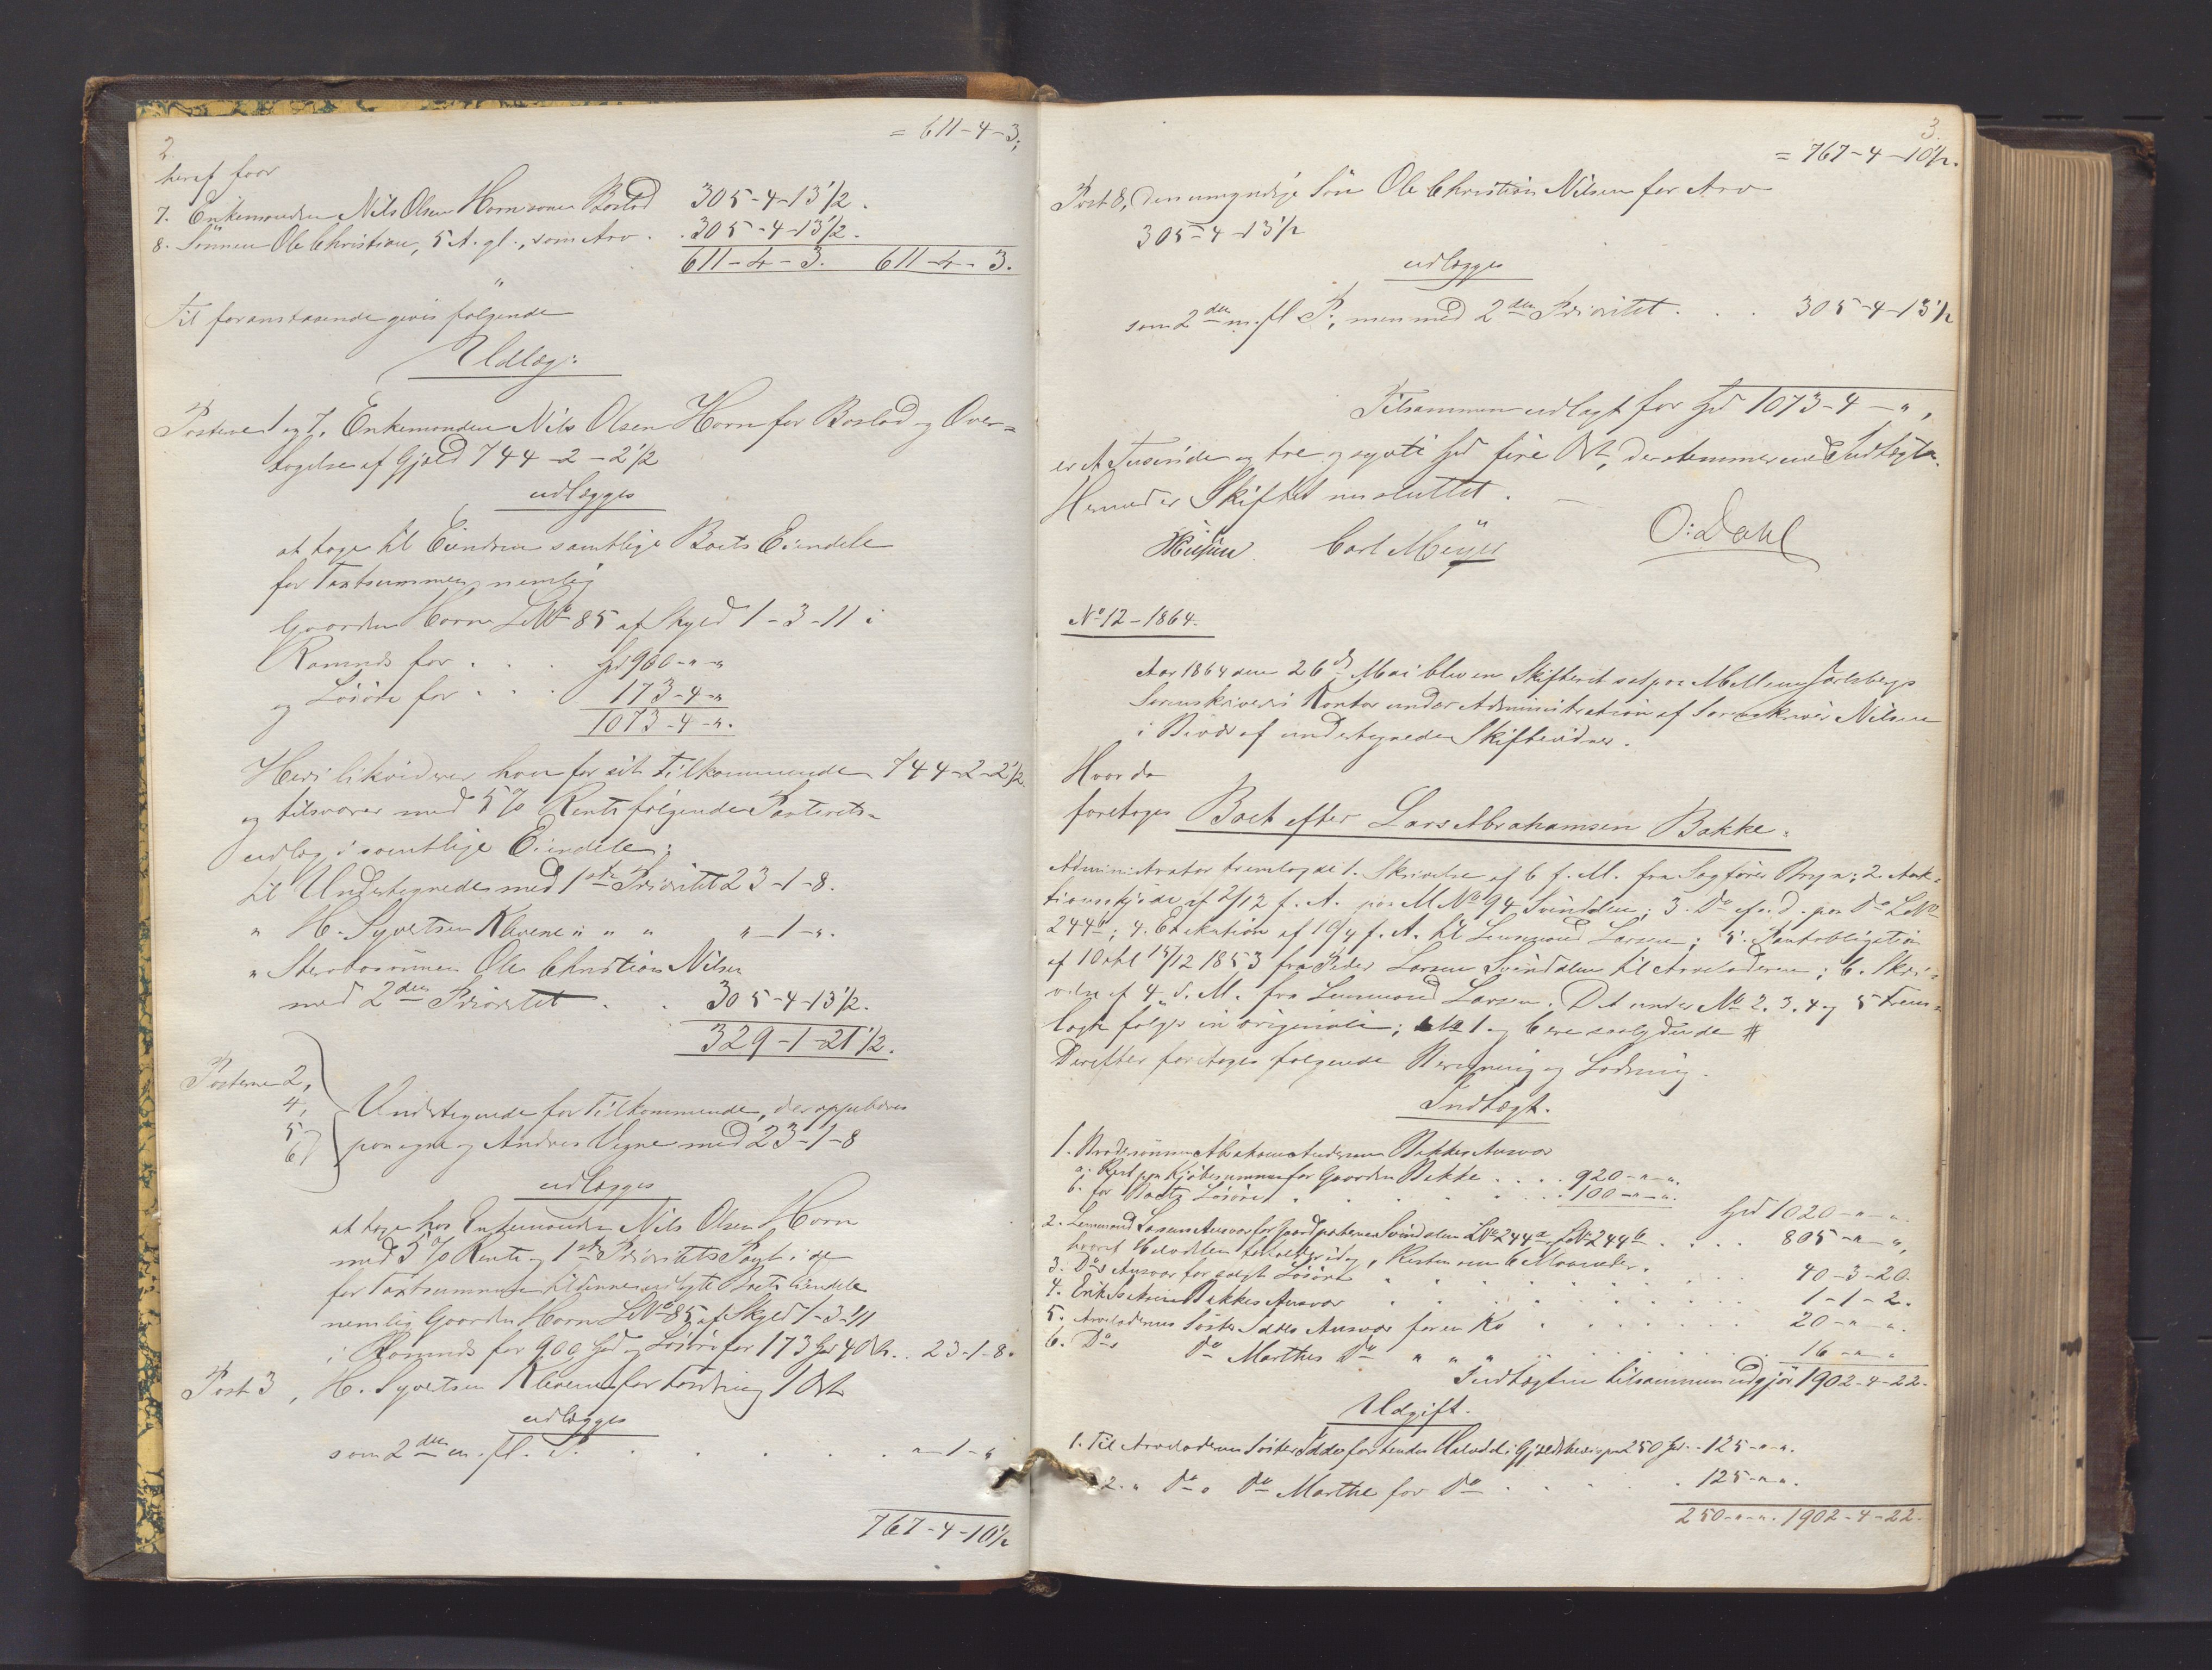 2
= 611-4-3;
heraf faar
7. Enkemanden Nils Olsen Horn som Boslod 305-4-13½.
8. Sønnen Ole Christian, 5 A. gl., som Arv . . 305-4-13½.
611-4-3. 611-4-3.
"
Til foranstaaende gives følgende
Udlæg:
Posterne 1 og 7. Enkemanden Nils Olsen Horn for Boslod og Over-
tagelse af Gjæld 744-2-2½
udlægges
at tage til Eiendom samtlige Boets Eiendele
for Taxtsummen, nemlig
Gaarden Horn LNº 85 af Skyld 1-3-11 i
Ramnes for . . . Spd 900-"-"
og Løsøre for . . . 173-4-"
1073-4-".
Heri likviderer han for sit Tilkommende 744-2-2½
og tilsvarer med 5% Rente følgende Panterets-
udlæg i samtlige Eiendele:
til Undertegnede med 1ste Prioritet 23-1-8.
" H. Syvertsen Klevene " " " "-1-".
" Sterbosønnen Ole Christian Nilsen
med 2den Prioritet . . 305-4-13½.
329-1-21½.
Posterne 2,
4,
5
6
Undertegnede for Tilkommende, der oppebæres
paa egne og Andres Vegne med 23-1-8
udlægges
at tage hos Enkemanden Nils Olsen Horn
med 5% Rente og 1ste Prioritets Pant i de
for Taxtsummen til denne udlagte Boets Eiendele
nemlig Gaarden Horn LNº 85 af Skyld 1-3-11
i Ramnes for 900 Spd og Løsøre for 173 Spd 4 Ort . . 23-1-8.
Post 3, H. Syvertsen Klevene for Fordring 1 Ort
udlægges
som 2den m. fl. P. . . . . . . "-1-"
767-4-10½
3.
= 767-4-10½.
Post 8, den umyndige Søn Ole Christian Nilsen for Arv
305-4-13½
udlægges
som 2den m. fl P., men med 2den Prioritet . . . 305-4-13½
Tilsammen udlagt for Spd 1073-4-",
er et Tusinde og tre og sytti Spd fire Ort, der stemmer med Indtægten.
Hermed er Skiftet nu sluttet.
Nilsen Carl Meyer O: Dahl
Nº 12-1864.
Aar 1864 den 26de Mai blev en Skifteret sat paa Mellem Jarlsbergs
Sorenskriveris Kontor under Administration af Sorenskriver Nilsen
i Biværelse af undertegnede Skiftevidner.
Hvor da
foretages Boet efter Lars Abrahamsen Bakke.
Administrator fremlagde 1. Skrivelse af 6 f. M. fra Sagfører Bryn; 2. Auk-
tionsskjøde af 2/12 f. A. paa MNº 94 Svindalen; 3. Dº af s. d. paa Dº LNº
244b; 4. Exekution af 19/4 f. A. til Larsen; 5. Pantobligation
af 10 okt 14/12 1853 fra Peder Larsen Svindalen til Arveladeren; 6. Skri-
velse af 4 d. M. fra Larsen. Det under Nº 2. 3. 4 og 5 Frem-
lagte følger in originali; Nº 1 og 6 ere saalydende #
Derefter foretoges følgende Beregning og Lodning.
Indtægt.
1. Brodersønnen Abraham Andersen Bakkes Ansvar
a. Rest paa Kjøbesummen for Gaarden Bakke . . . . 920-"-".
b. for Boets Løsøre . . . . . . . 100-"-".
Spd 1020-"-"
2. Larsens Ansvar for Gaardparterne Svindalen LNº 244a og LNº 244b . . . . 805-"-",
hvoraf Halvdelen betales idag, Resten om 6 Maaneder.
3. Dos Ansvar for solgt Løsøre . . . . . . . 40-3-20.
4. Erik Bakkes Ansvar . . . . . . . 1-1-2.
5. Arveladerens Søster Ansvar for en Ko . . . . . . . 20-"-".
6. Dos Dº Marthes Dº " " " . . . . . . . 16-"-"
Indtægten tilsammen udgjør 1902-4-22.
Udgift.
1. Til Arveladerens Søster for hendes Halvdel i Gjældsbevis paa 250 Spd . . 125-"-".
2. " Dº " Dº Marthe for Dº . . . . . . 125-"-".
250-"-". 1902-4-22.